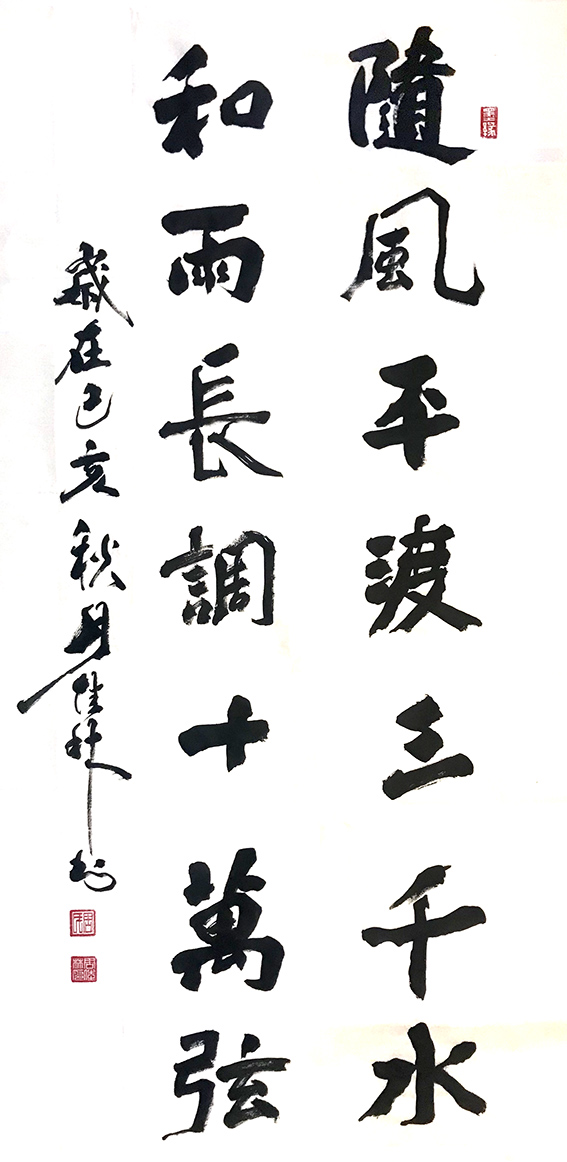 隨風平渡三千水
和雨長調十萬弦
歲在己亥秋月佳林